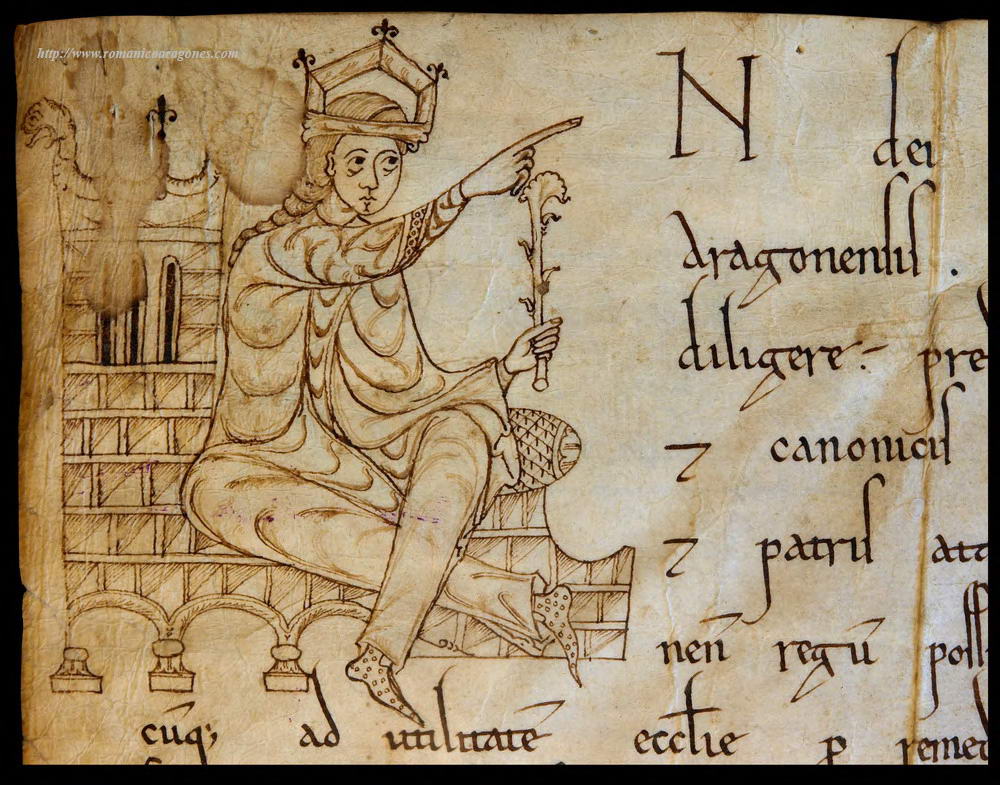 http://www.romanicoaragones.com
N dei
Aragonensis .
diligere: pre
⁊ canonicis
⁊ patris ata
nen̄ regū poss
cūq; ad utilitatē ecclie p remed